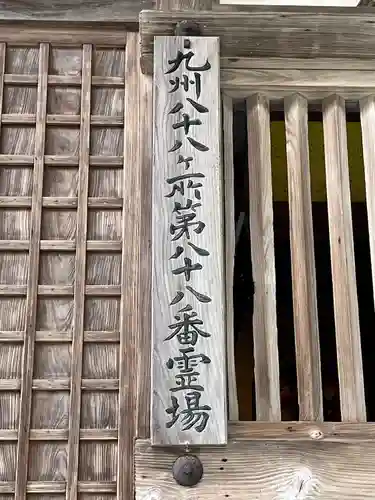 九州八十八ヶ所第八十八番霊場